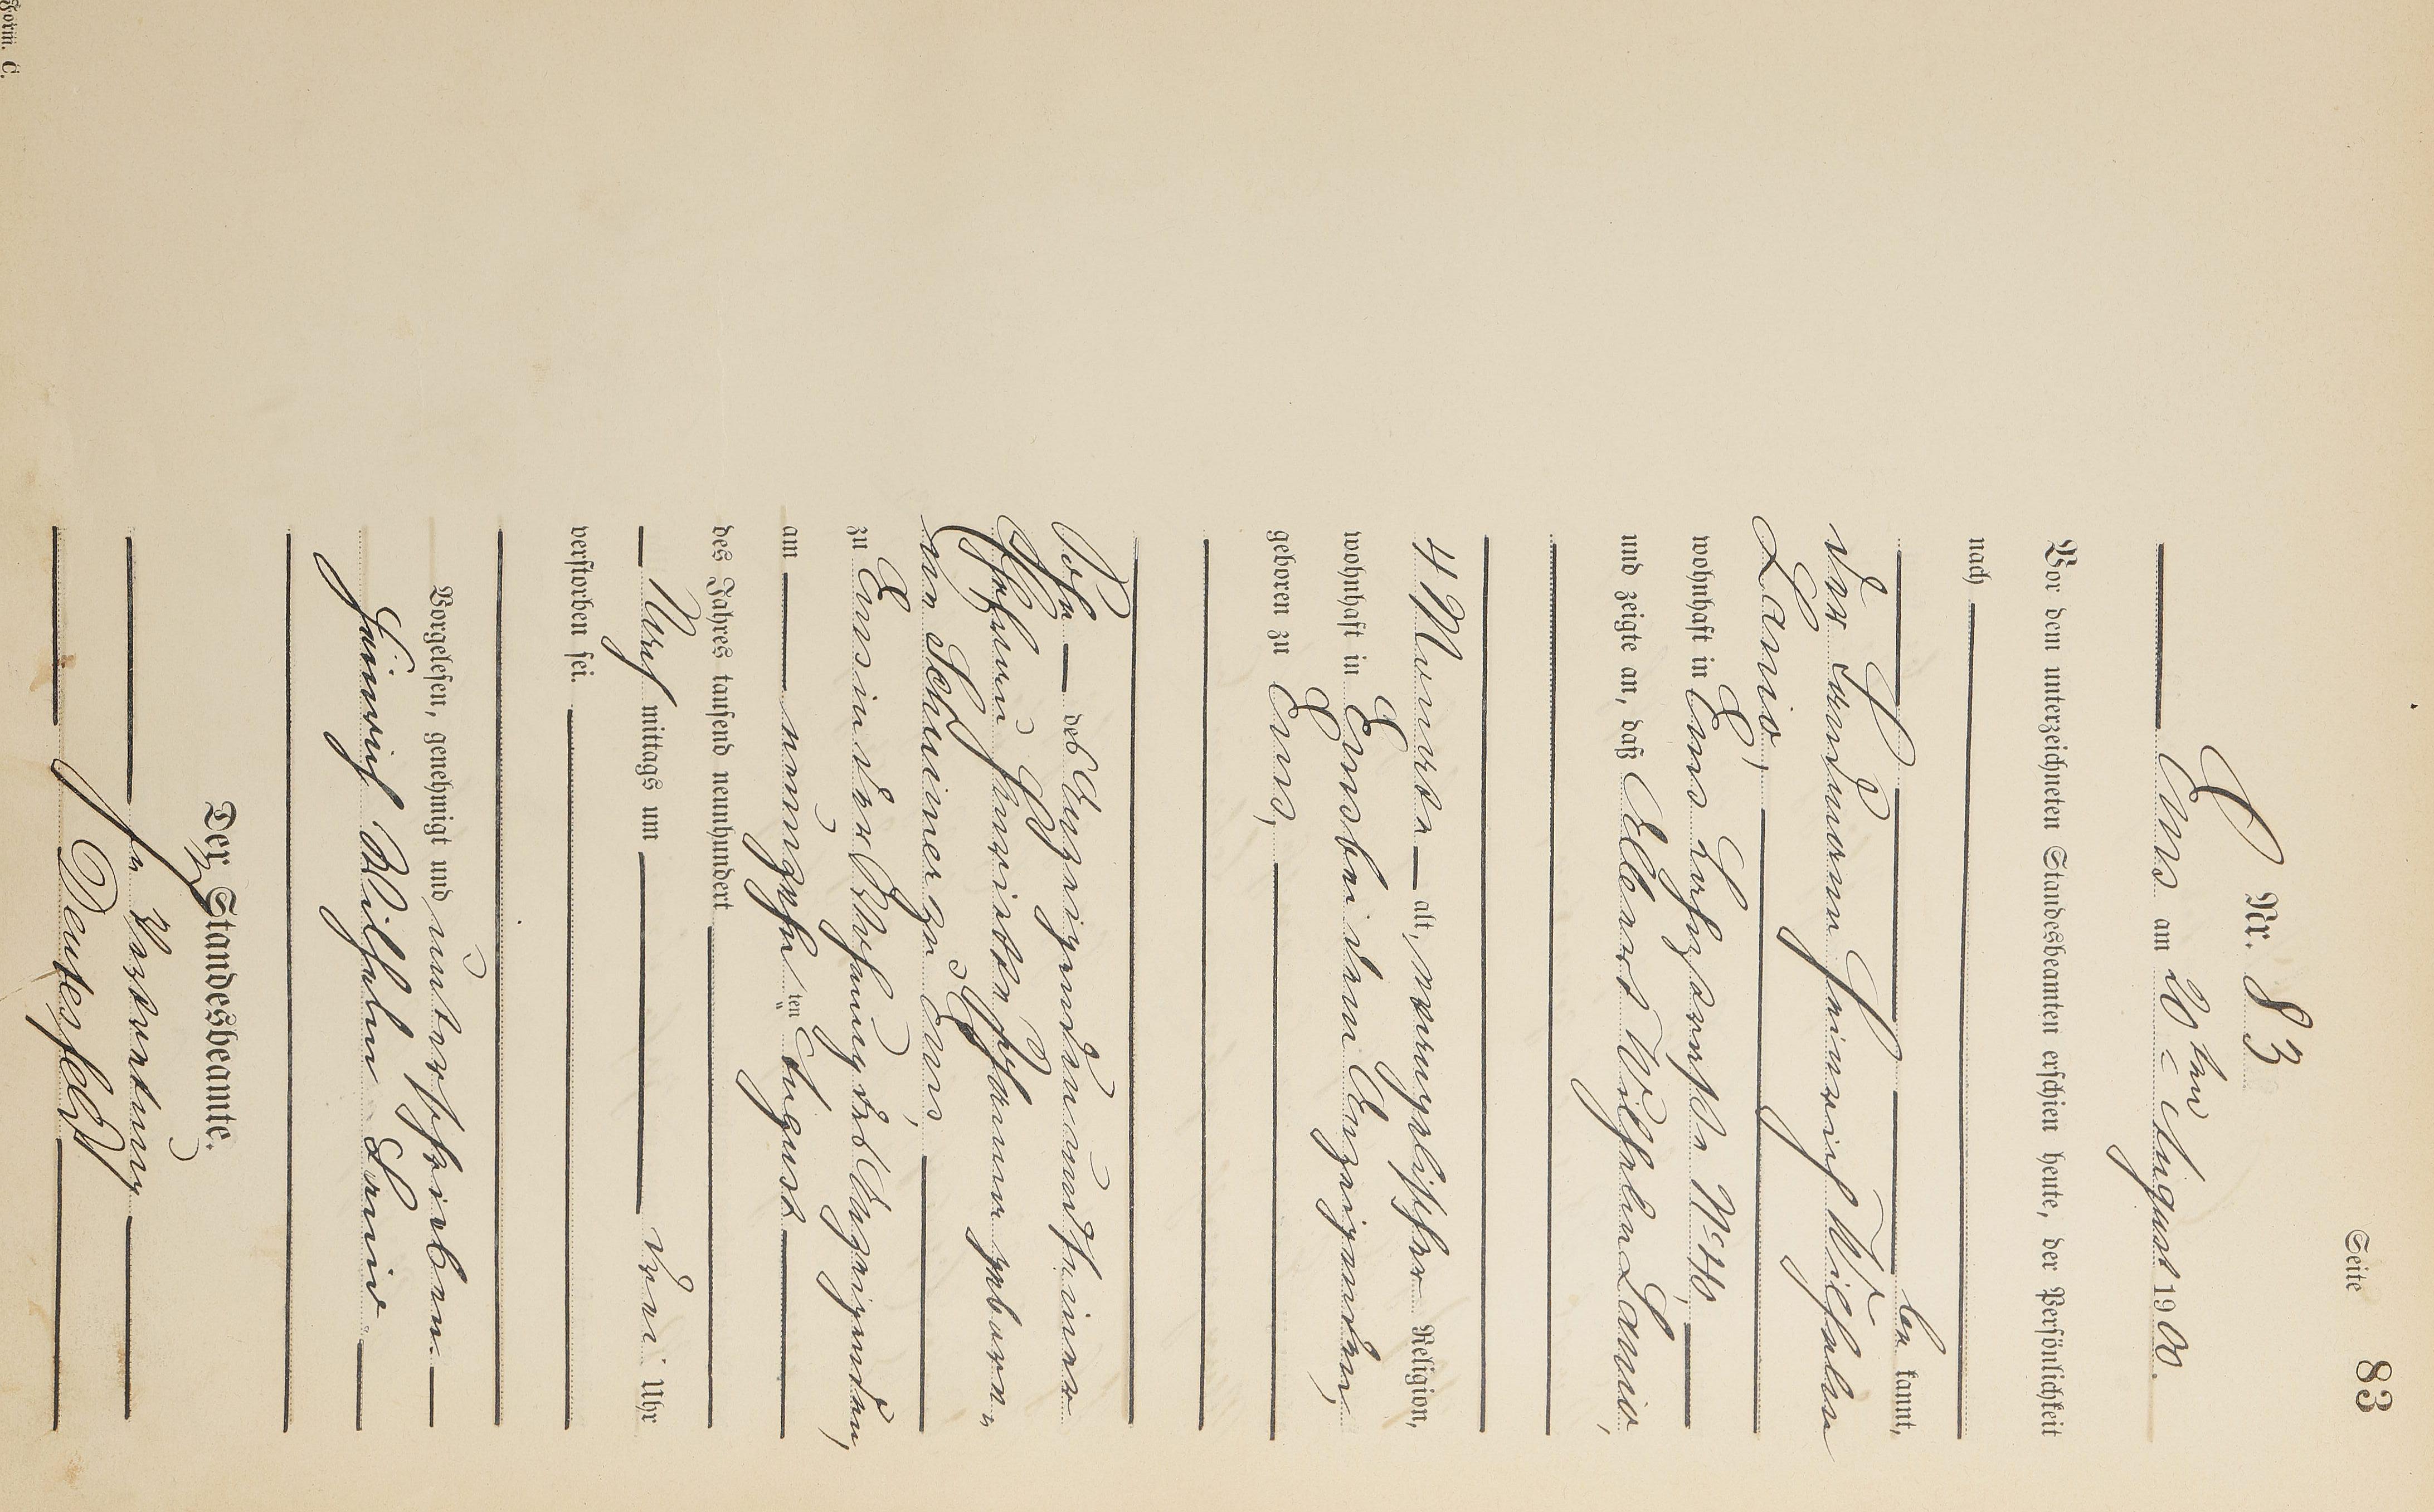 Seite 83
Nr. 83
Ems am 20ten August 1900.
Vor dem unterzeichneten Standesbeamten erschien heute, der Persönlichkeit
nach
be kannt,
der Fuhrmann Heinrich Wilhelm
wohnhaft in Ems Nº 40,
und zeigte an, daß Albert Wilhelm
4 Monate alt, evangelischer Religion,
wohnhaft in Ems bei dem Anzeigenden,
geboren zu Ems,
Sohn des Anzeigenden und seiner
Ehefrau Henriette Johanna gebore-
nen zu Ems,
zu Ems in der Behausung des Anzeigenden,
am neunzehnten August
des Jahres tausend neunhundert
Nachmittags um drei Uhr
verstorben sei.
Vorgelesen, genehmigt und unterschrieben
Heinrich Wilhelm
Der Standesbeamte.
In Vertretung
Form. C.